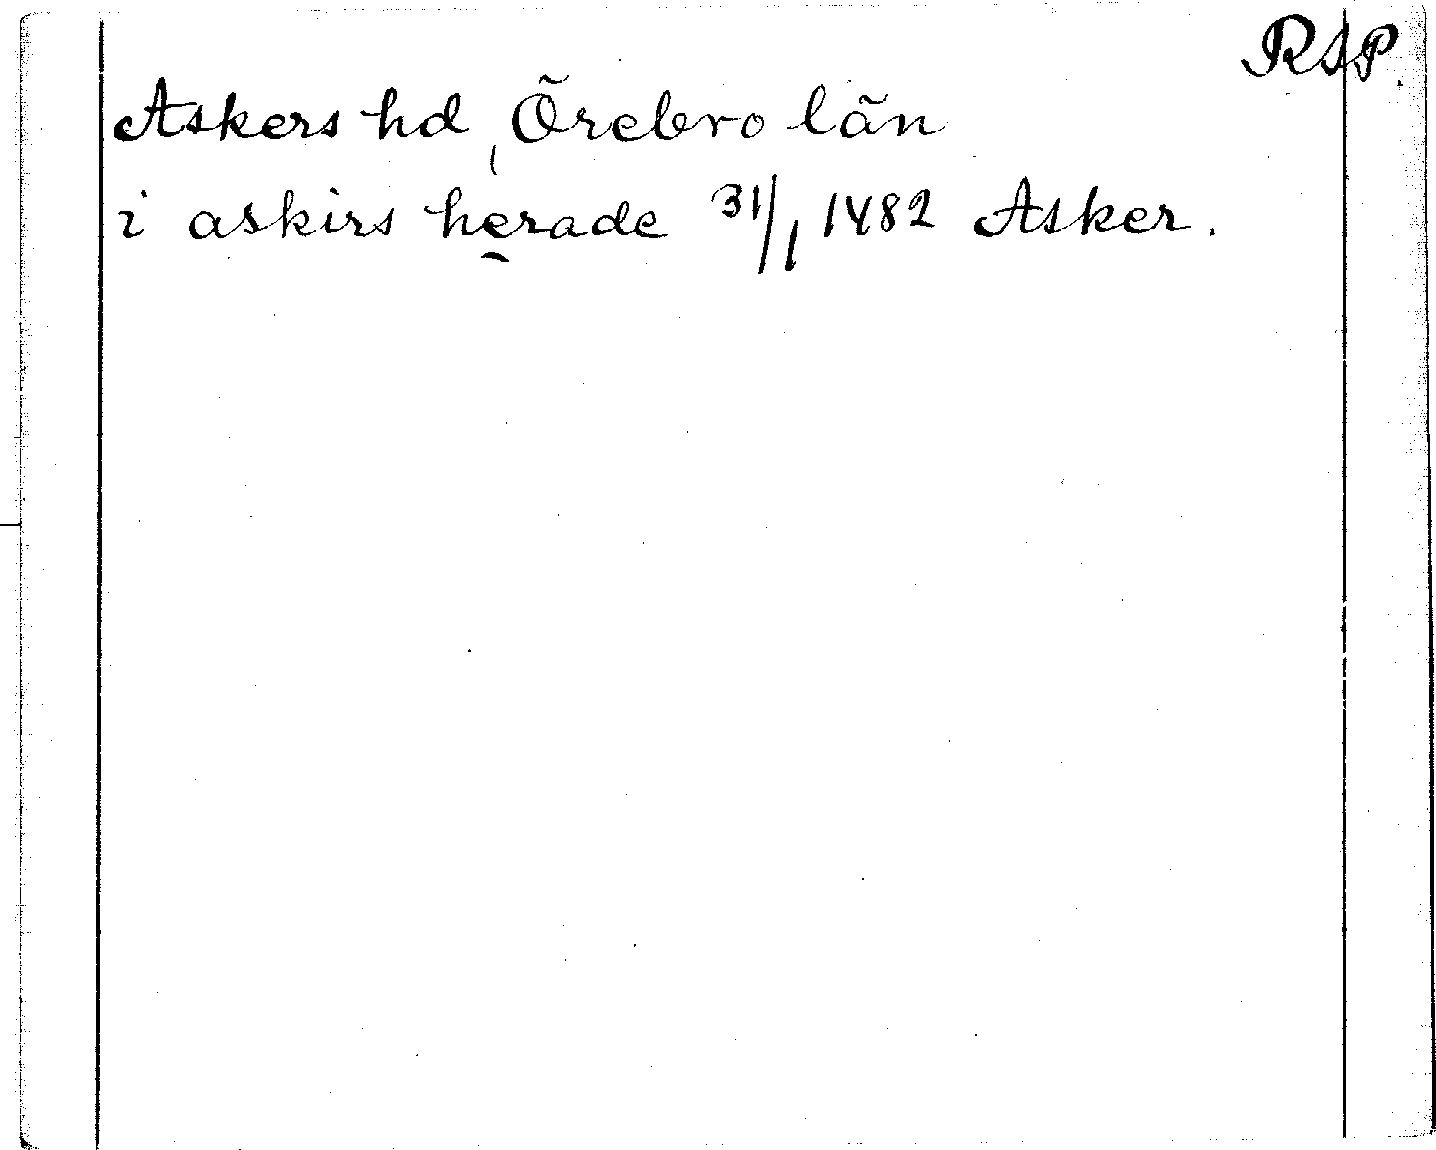 RAP.
Askers hd, Örebro län
i askirs herade 31/1 1482 Asker.